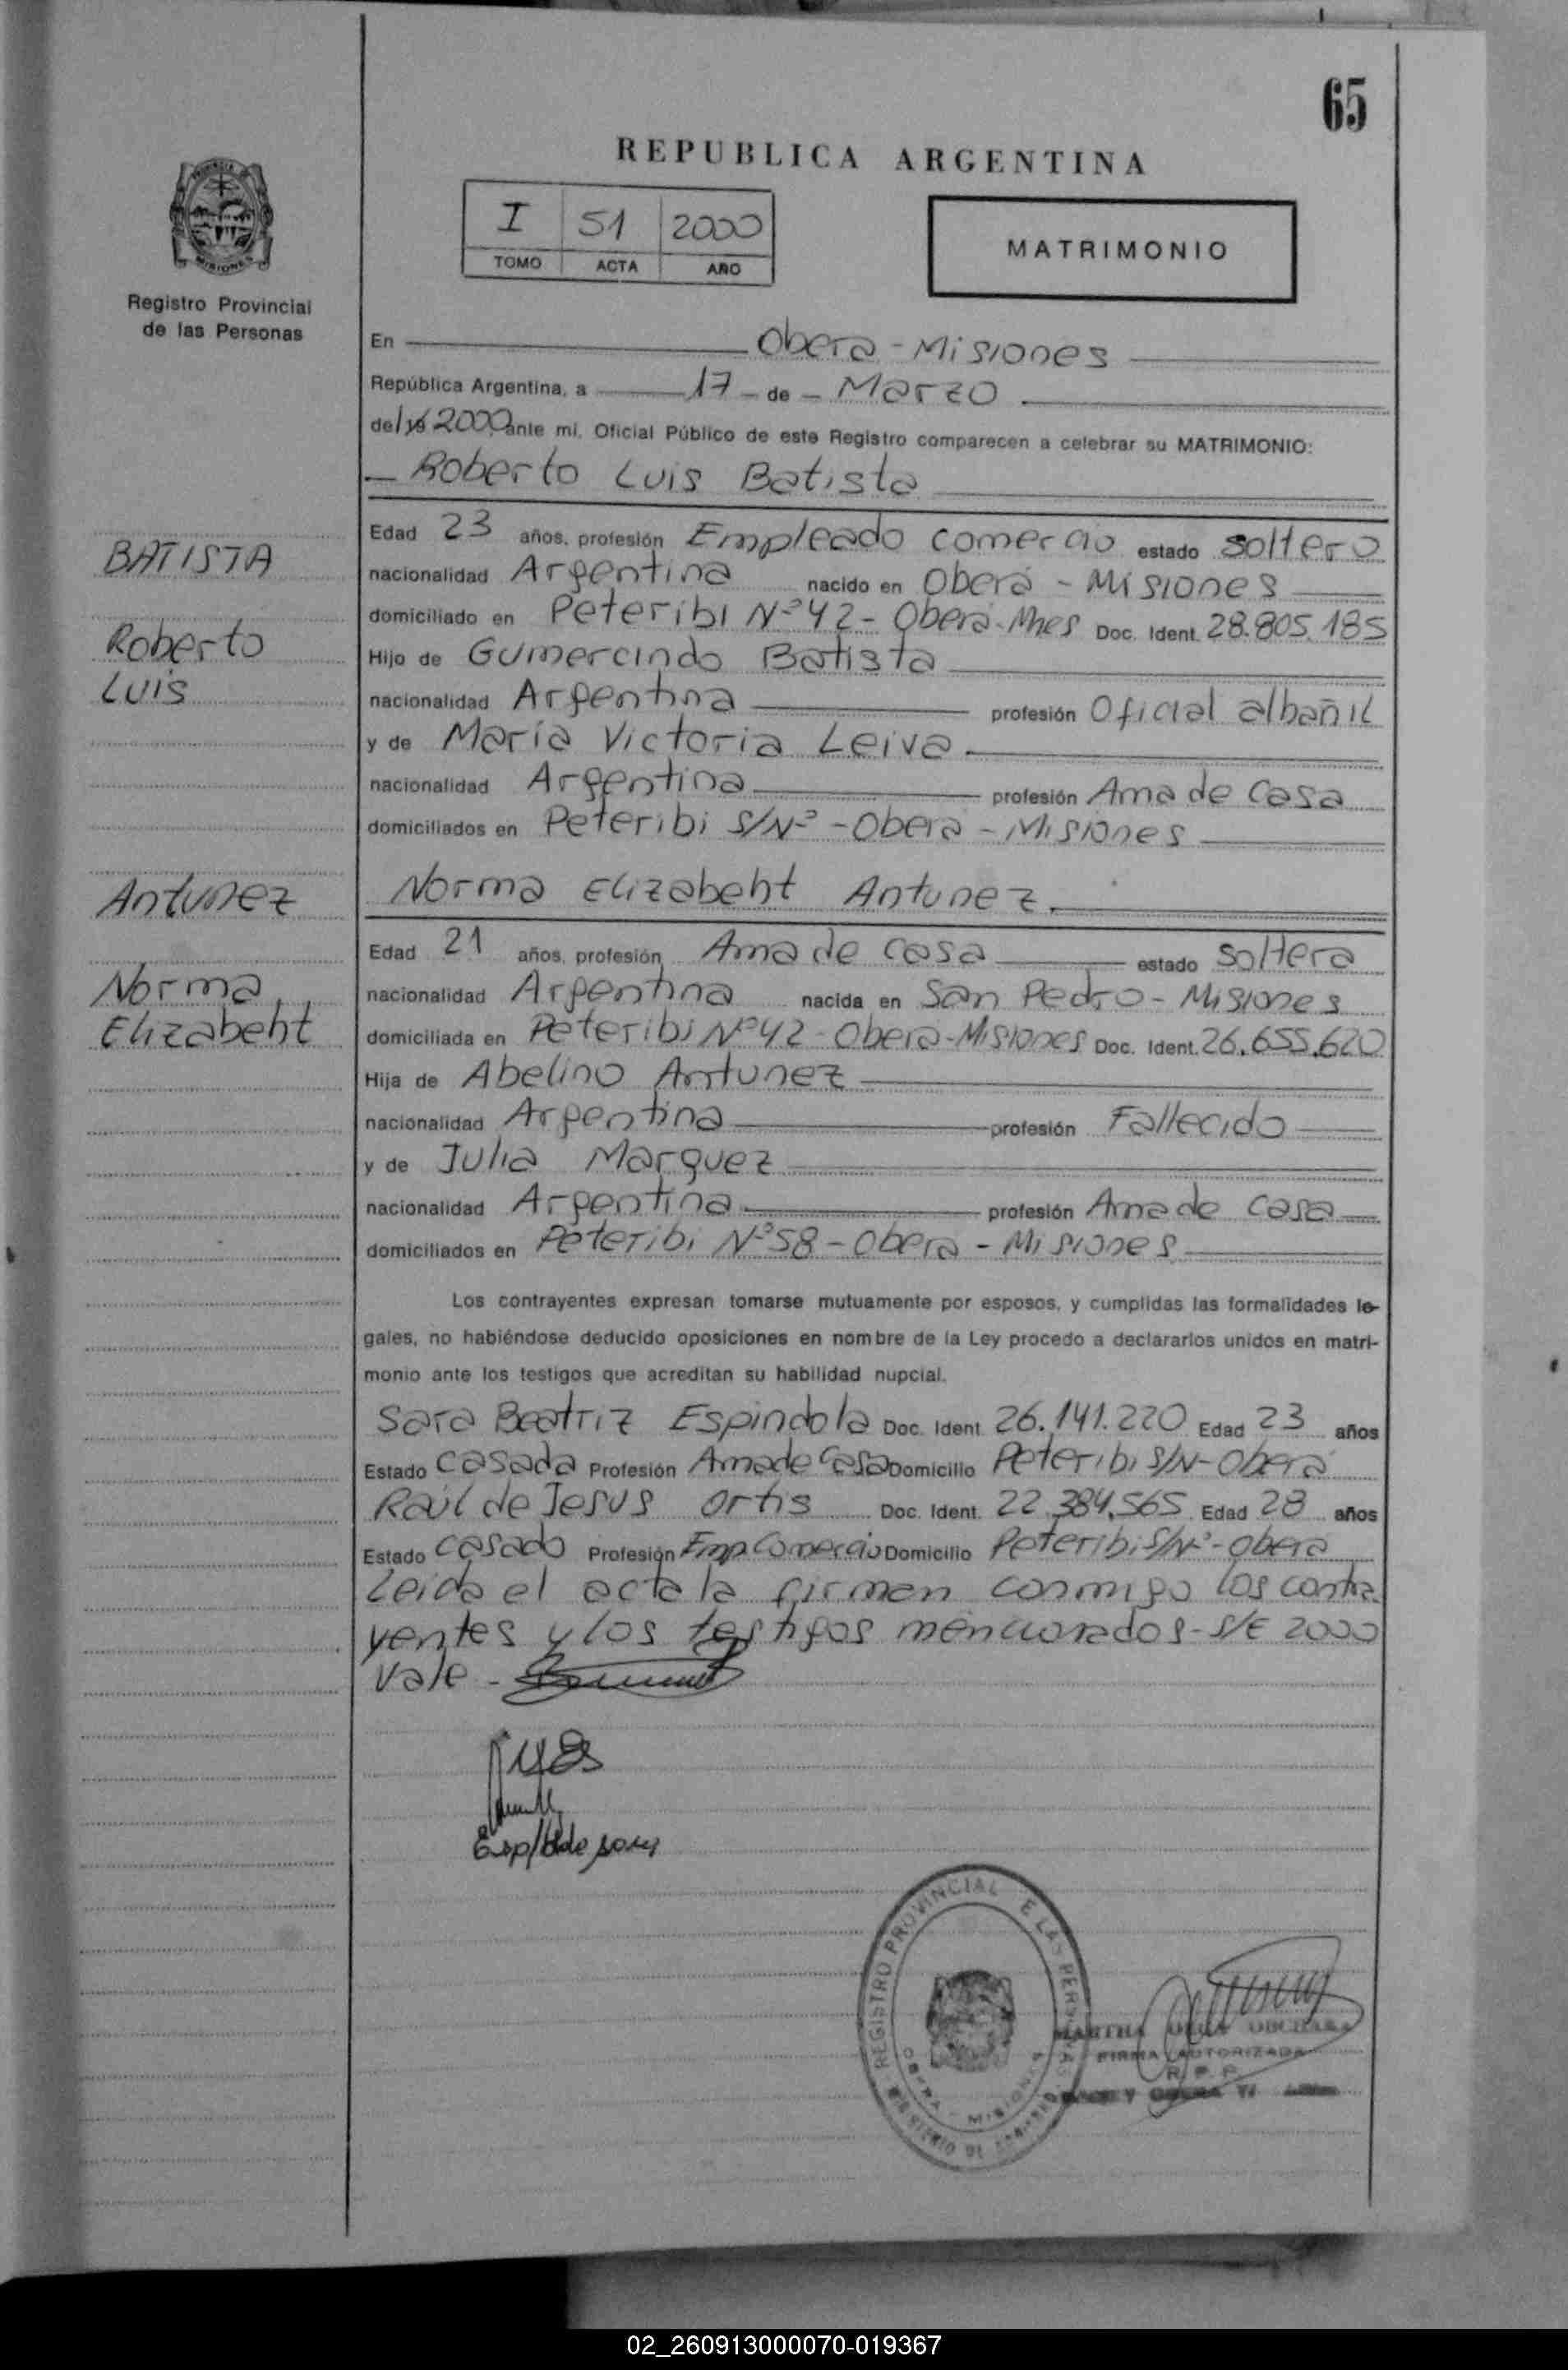 65
REPUBLICA ARGENTINA
I 51 2000
TOMO ACTA AÑO
MATRIMONIO
MISIONES
Registro Provincial
de las Personas
En Obera - Misiones
República Argentina, a 17 - de - Marzo
del 19 2000 ante mí, Oficial Público de este Registro comparecen a celebrar su MATRIMONIO:
Roberto Luis Batista
BATISTA
Roberto
Luis
Edad 23 años, profesión Empleado comercio estado soltero
nacionalidad Argentina nacido en Oberá - Misiones
domiciliado en Peteribi Nº 42 - Oberá - Mnes Doc. Ident. 28.805.185
Hijo de Gumercindo Batista
nacionalidad Argentina profesión Oficial albañil
y de María Victoria Leiva
nacionalidad Argentina profesión Ama de Casa
domiciliados en Peteribi S/Nº - Oberá - Misiones
Antunez
Norma
Elizabeht
Norma Elizabeht Antunez.
Edad 21 años, profesión Ama de casa estado soltera
nacionalidad Argentina nacida en San Pedro - Misiones
domiciliada en Peteribi Nº 42 - Obera - Misiones Doc. Ident. 26.655.620
Hija de Abelino Antunez
nacionalidad Argentina profesión Fallecido
y de Julia Marquez
nacionalidad Argentina profesión Ama de casa
domiciliados en Peteribi Nº 58 - Obera - Misiones
Los contrayentes expresan tomarse mutuamente por esposos, y cumplidas las formalidades le-
gales, no habiéndose deducido oposiciones en nombre de la Ley procedo a declararlos unidos en matri-
monio ante los testigos que acreditan su habilidad nupcial.
Sara Beatriz Espindola Doc. Ident. 26.141.220 Edad 23 años
Estado Casada Profesión Ama de Casa Domicilio Peteribi S/N - Oberá
Raúl de Jesus Ortis Doc. Ident. 22.384.565 Edad 28 años
Estado Casado Profesión Emp Comercio Domicilio Peteribi S/Nº - Obera
Leida el acta la firman conmigo los contra
yentes y los testigos mencionados - S/E 2000
Vale -
REGISTRO PROVINCIAL DE LAS PERSONAS
OBERA - MISIONES
MARTHA OLGA
FIRMA AUTORIZADA
R.P.P.
02_260913000070-019367